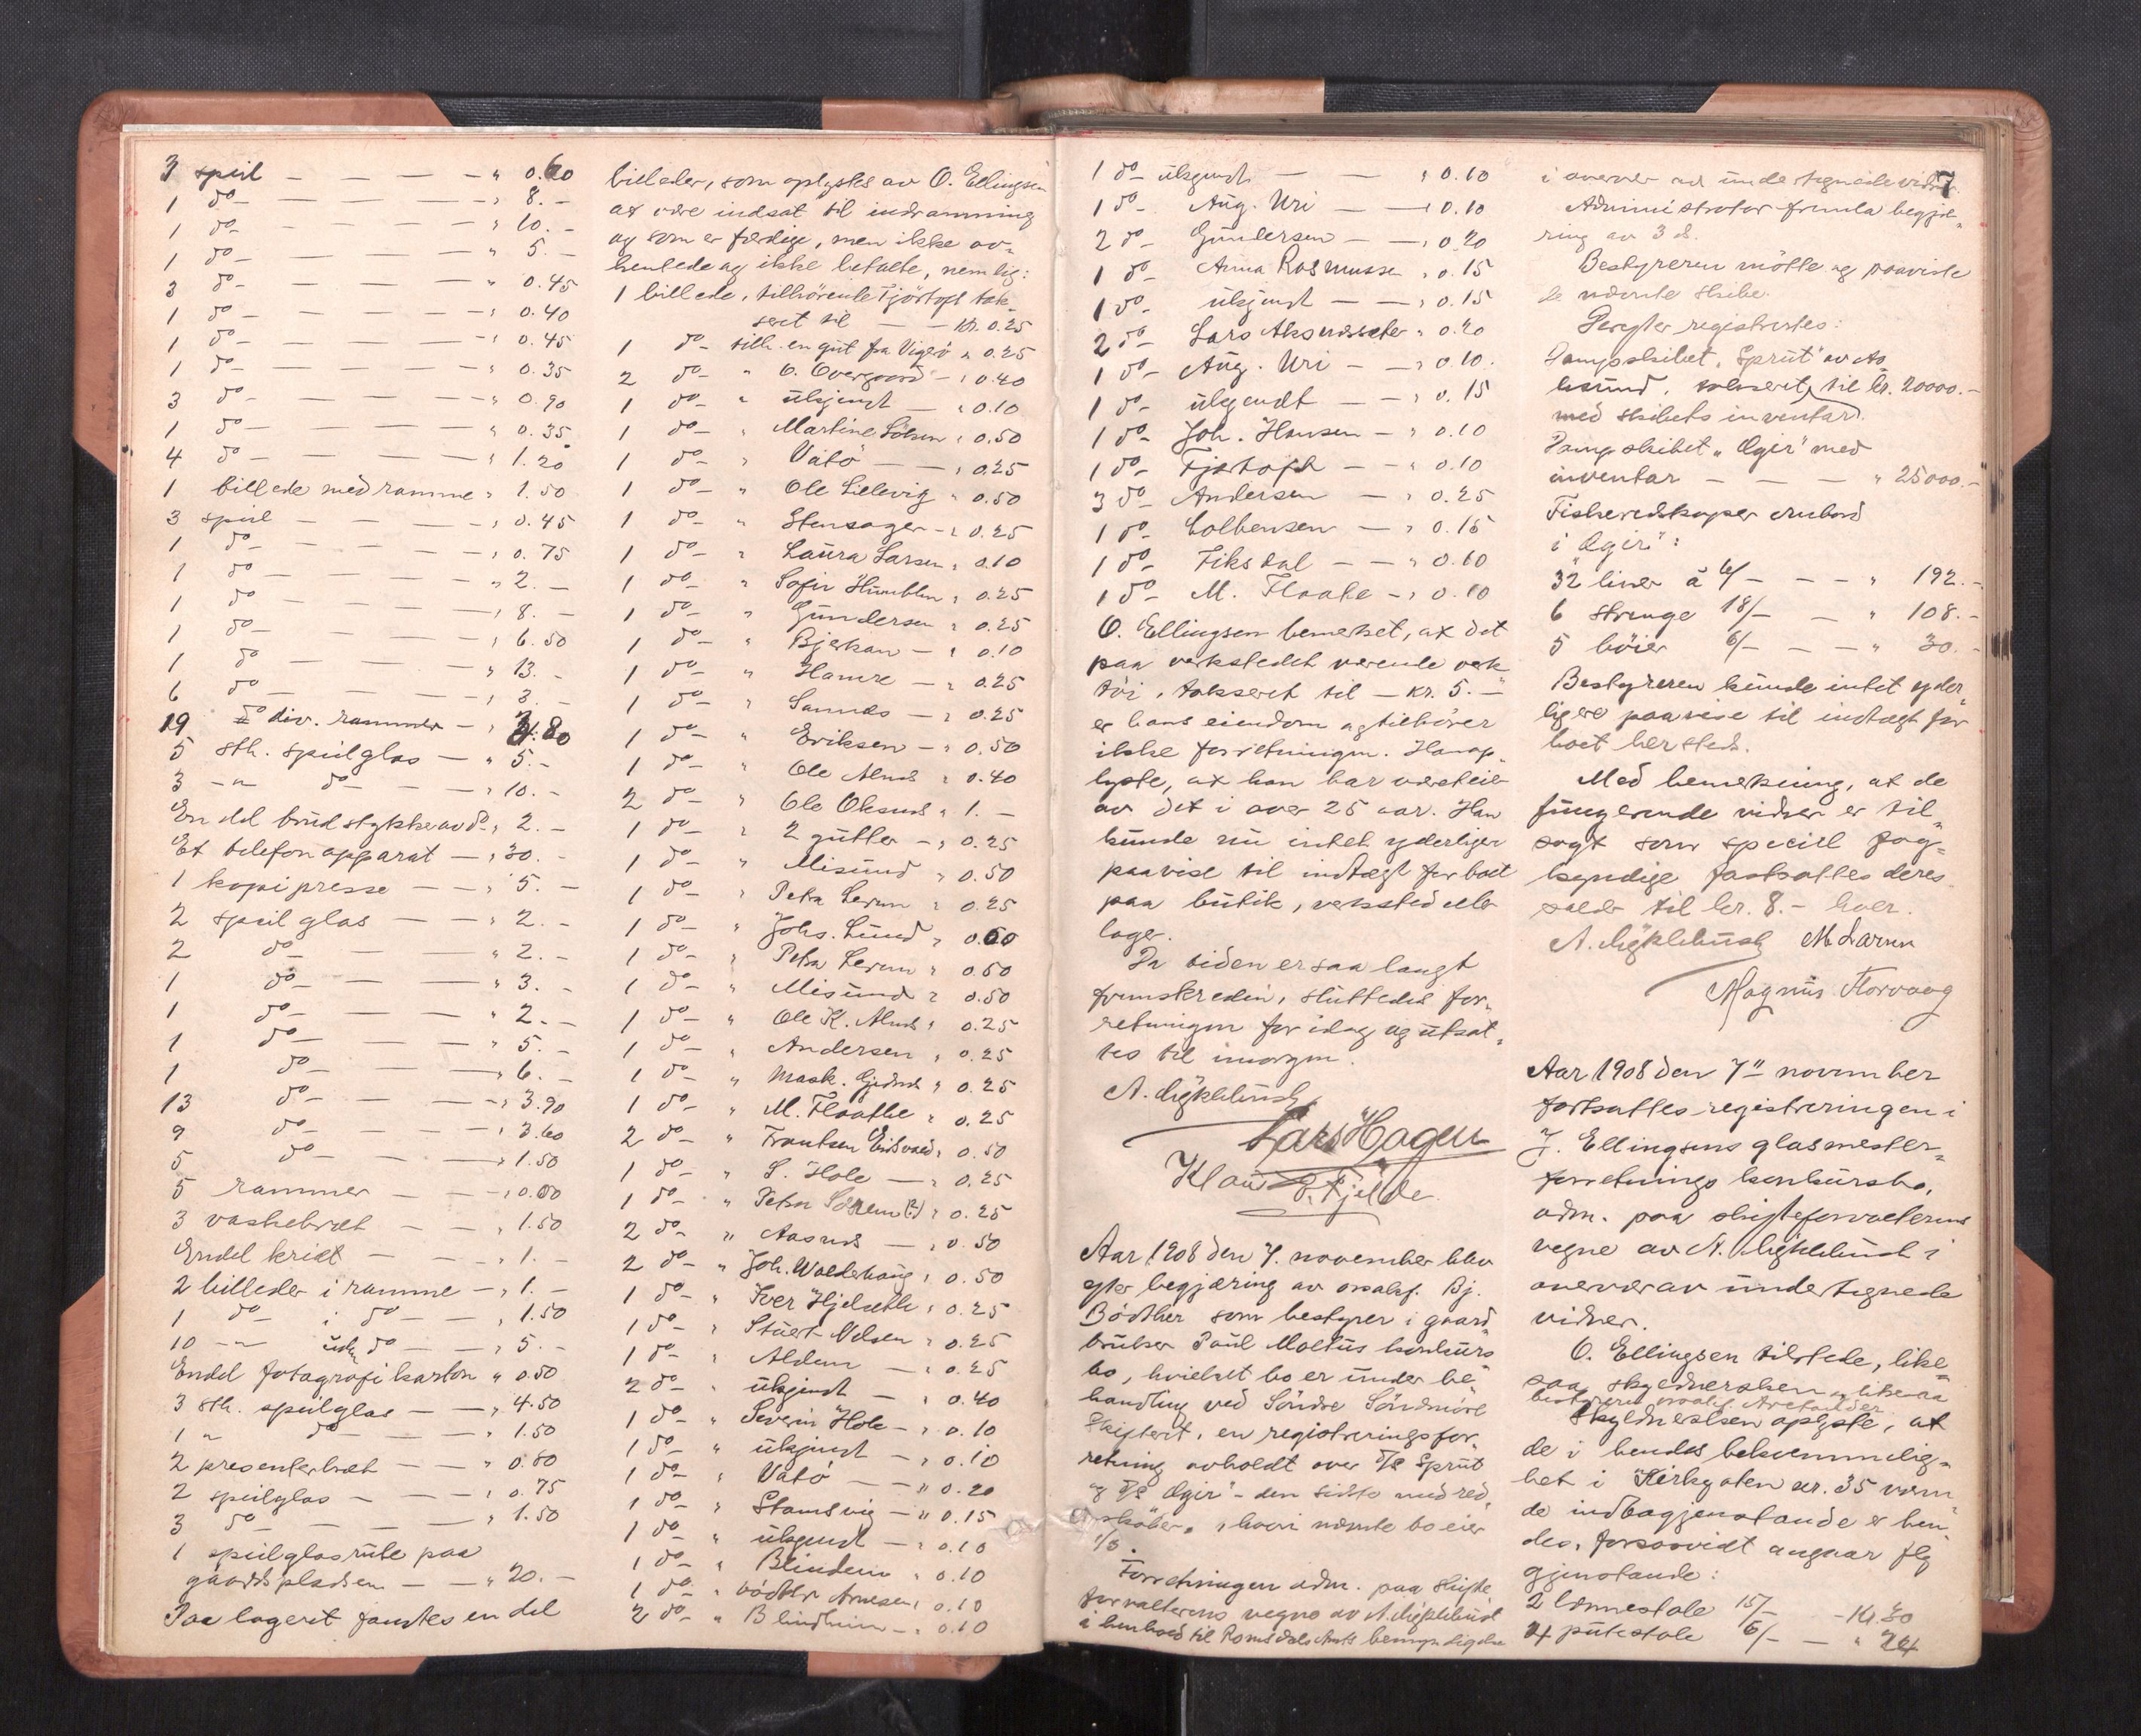 3 speil — — — — " 0.60
1 do — — — — " 8.-
1 do — — — — " 10.-
1 do — — — — " 5.-
3 do — — — — " 0.45
1 do — — — — " 0.40
1 do — — — — " 0.45
1 do — — — — " 0.35
3 do — — — — " 0.90
1 do — — — — " 0.35
4 do — — — — " 1.20
1 billede med ramme " 1.50
3 speil — — — — " 0.45
1 do — — — — " 0.75
1 do — — — — " 2.—
1 do — — — — " 8.-
1 do — — — — " 6.50
1 do — — — — " 13.-
6 do — — — — " 3.-
19 div. rammer — " 3.80
5 stk. speilglas — " 5.-
3 -"- do — — " 10.-
En del brudstykker av do " 2.-
Et telefonapparat — " 30.-
1 kopipresse — — " 5.-
2 speilglas — — " 2.-
2 do — — " 2.-
1 do — — " 3.-
1 do — — " 2.-
1 do — — " 5.-
1 do — — " 6.-
13 do — — " 3.90
9 do — — " 3.60
5 do — — " 1.50
5 rammer — — " 0.50
3 vaskebræt — — " 1.50
Endel kridt — — " 1.-
2 billeder i ramme — " 1.-
1 do i do — " 1.50
10 -"- uden do — " 5.-
Endel fotografikarton " 0.50
3 stk. speilglas — " 4.50
1 " do — " 1.50
2 presenterbræt — — " 0.80
2 speilglas — — " 0.75
3 do — — — " 1.50
1 speilglasrute paa
gaardspladsen — — " 20.-
Paa lageret fandtes en del
billeder, som oplystes av O. Ellingsen
at være indsat til indramning
og som er færdige, men ikke av-
hentede og ikke betalte, nemlig:
1 billede, tilhörende Fjörtoft tak-
seret til — — kr. 0.25
1 do tilh. en gut fra Vigrö " 0.25
2 do " O. Overgaard — " 0.40
1 do " ukjendt — " 0.10
1 do " Martine Solsen " 0.50
1 do " Vatö — — " 0.25
1 do " Ole Lillevig " 0.50
1 do " Stensager — " 0.25
1 do " Laura Larsen " 0.10
1 do " Sofie Humblen " 0.25
1 do " Gundersen " 0.25
1 do " Bjerkan — " 0.10
1 do " Hamre — " 0.25
1 do " Sannes — " 0.25
1 do " Eriksen — " 0.50
1 do " Ole Alnes " 0.40
2 do " Ole Oksnes " 1.-
1 do " 2 gutter — " 0.25
1 do " Misund " 0.50
1 do " Petra Lerum " 0.25
1 do " Johs. Lund " 0.60
1 do " Petra Lerum " 0.50
1 do " Misund " 0.50
1 do " Ole K. Alnes " 0.25
1 do " Andersen " 0.25
1 do " Mask. Gjednes " 0.25
1 do " M. Flaathe " 0.25
2 do " Frantsen Eidsvaag " 0.50
1 do " S. Hole — " 0.25
1 do " Petra Lörem (?) " 0.25
2 do " Aasnes — " 0.50
2 do " Joh. Waldehaug " 0.50
1 do " Iver Hjelseth " 0.25
1 do " Stuert Nilsen " 0.25
1 do " Aldem — " 0.25
2 do " ukjendt — " 0.40
1 do " Severin Hole — " 0.10
1 do " ukjendt — " 0.10
1 do " Vatö — " 0.20
1 do " Stamsvig — " 0.15
1 do " ukjendt — " 0.10
1 do " Blindem " 0.10
1 do " bödker Arnesen " 0.10
2 do " Blindheim — " 0.10
7
1 do ukjendt — — " 0.10
1 do Aug. Uri — — " 0.10
2 do Gundersen — — " 0.20
1 do Anna Rasmussen " 0.15
1 do ukjendt — — " 0.15
2 do Lars Aksnesseter " 0.20
1 do Aug. Uri — — " 0.10.
1 do ukjendt — — " 0.15
1 do Joh. Hansen — " 0.10
1 do Fjörtoft — — " 0.10
3 do Andersen — " 0.25
1 do Colbensen — " 0.15
1 do Fiksdal — — " 0.60
1 do M. Flaathe — " 0.10
O. Ellingsen bemerket, at det
paa verkstedet værende verk-
töi, takseret til — kr. 5.—
er hans eiendom og tilhörer
ikke forretningen. Han op-
lyste, at han har været eier
av det i over 25 aar. Han
kunde nu intet yderligere
paavise til indtægt for boet
paa butik, verksted eller
lager.
Da tiden er saa langt
fremskreden, sluttedes for-
retningen for idag og utsat-
tes til imorgen.
A. Myklebust
Lars Hagen
Klaus P. Fjelde.
Aar 1908 den 7. november blev
efter begjæring av overretssakf. Bj.
Bödtker som bestyrer i gaard-
bruker Paul Moltus konkurs-
bo, hvilket bo er under be-
handling ved Söndre Söndmöre
Skifteret, en registreringsfor-
retning avholdt over D/S Sprut
og D/S Ægir - den sidste med red-
skaber, hvori nævnte bo eier
1/3.
Forretningen adm. paa skifte-
forvalterens vegne av A. Myklebust
i henhold til Romsdals Amts bemyndigelse
i overvær av undertegnede vidner.
Administrator fremla begjæ-
ring av 3 ds.
Bestyreren mötte og paaviste
de nævnte skibe.
Derefter registrertes:
Dampskibet "Sprut" av Aa-
lesund, takseret til kr. 20000.-
med skibets inventar.
Dampskibet "Ægir" med
inventar — — — " 25000.-
Fiskeredskaper ombord
i "Ægir":
32 liner à 6/- — — " 192.-
6 strenge 18/- — " 108.-
5 böier 6/- — — " 30.-
Bestyreren kunde intet yder-
ligere paavise til indtægt for
boet hersteds.
Med bemerkning, at de
fungerende vidner er til-
sagt som speciell fag-
kyndige fastsattes deres
salær til kr. 8.- hver.
A. Myklebust M. Larsen
Magnus Florvaag
Aar 1908 den 7" november
fortsattes registreringen i
J. Ellingsens glasmester-
forretnings konkursbo,
adm. paa skifteforvalterens
vegne av A. Myklebust i
overvær av undertegnede
vidner.
O. Ellingsen tilstede, like-
saa skyldnersken, likesaa
bestyreren
Skyldnersken oplyste, at
de i hendes bekvemmelig-
het i Kirkegaten nr. 35 væren-
de indbogjenstande er hen-
des, forsaavidt angaar flg
gjenstande:
2 lænestole 15/- — Kr. 30
4 putestole 6/- — " 24